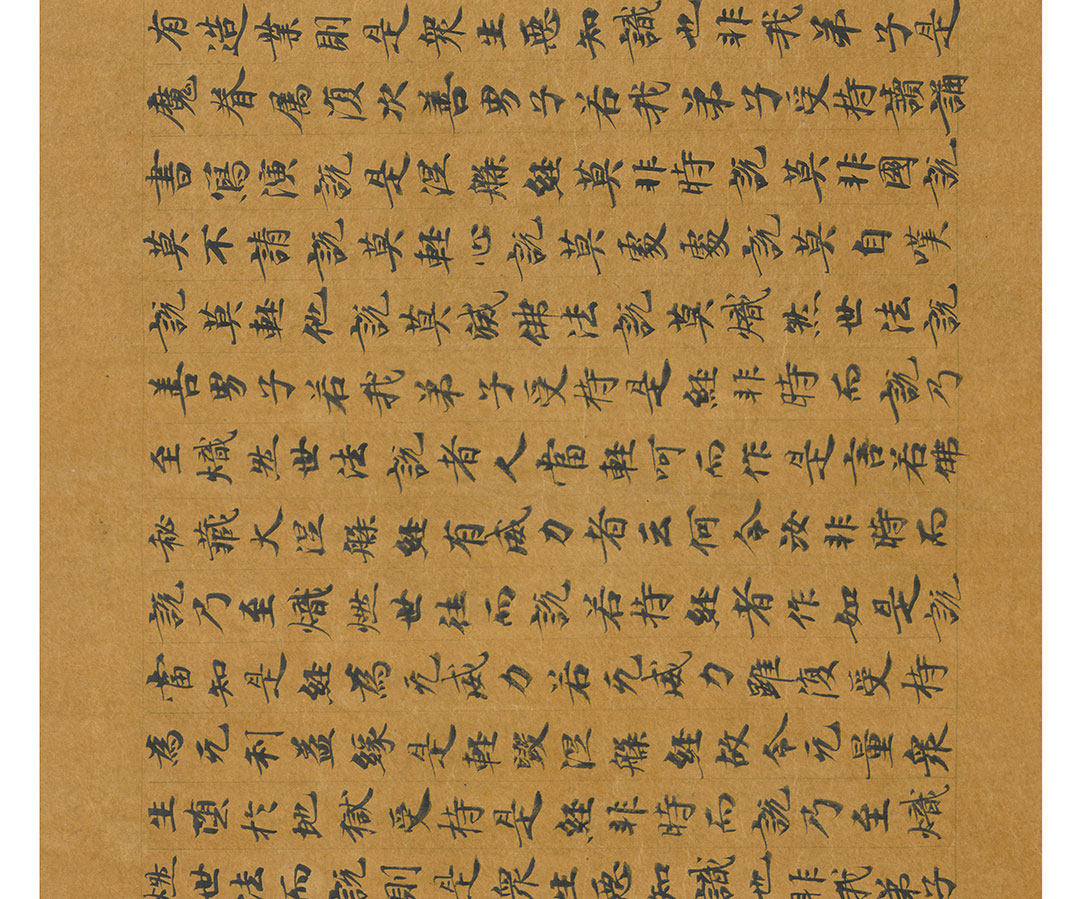 有造業則是衆生惡知識也非我弟子是
魔眷属復次善男子若我弟子受持讀誦
書寫演說是涅槃經莫非時說莫非國說
莫不請說莫輕心說莫處處說莫自嘆
說莫輕他說莫滅佛法說莫熾然世法說
善男子若我弟子受持是經非時而說乃
至熾然世法說者人當輕呵而作是言若佛
秘藏大涅槃經有威力者云何令汝非時而
說乃至熾燃世往而說若持經者作如是說
當知是經為无威力若无威力雖復受持
為无利益緣是輕毀涅槃經故令无量衆
生墮於地獄受持是經非時而說乃至熾
燃世法而說則是衆生惡知識也非我弟子